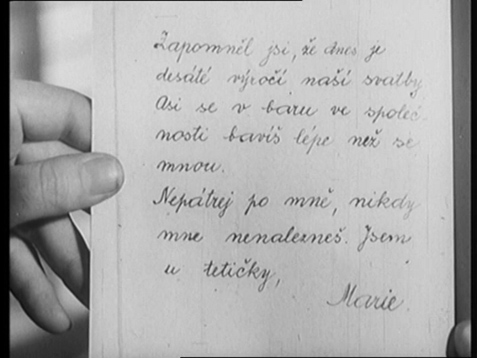 Zapomněl jsi, že dnes je
desáté výročí naší svatby
Asi se v baru ve společ-
nosti bavíš lépe než se
mnou.
Nepátrej po mně, nikdy
mne nenalezneš. Jsem
u tetičky,
Marie.